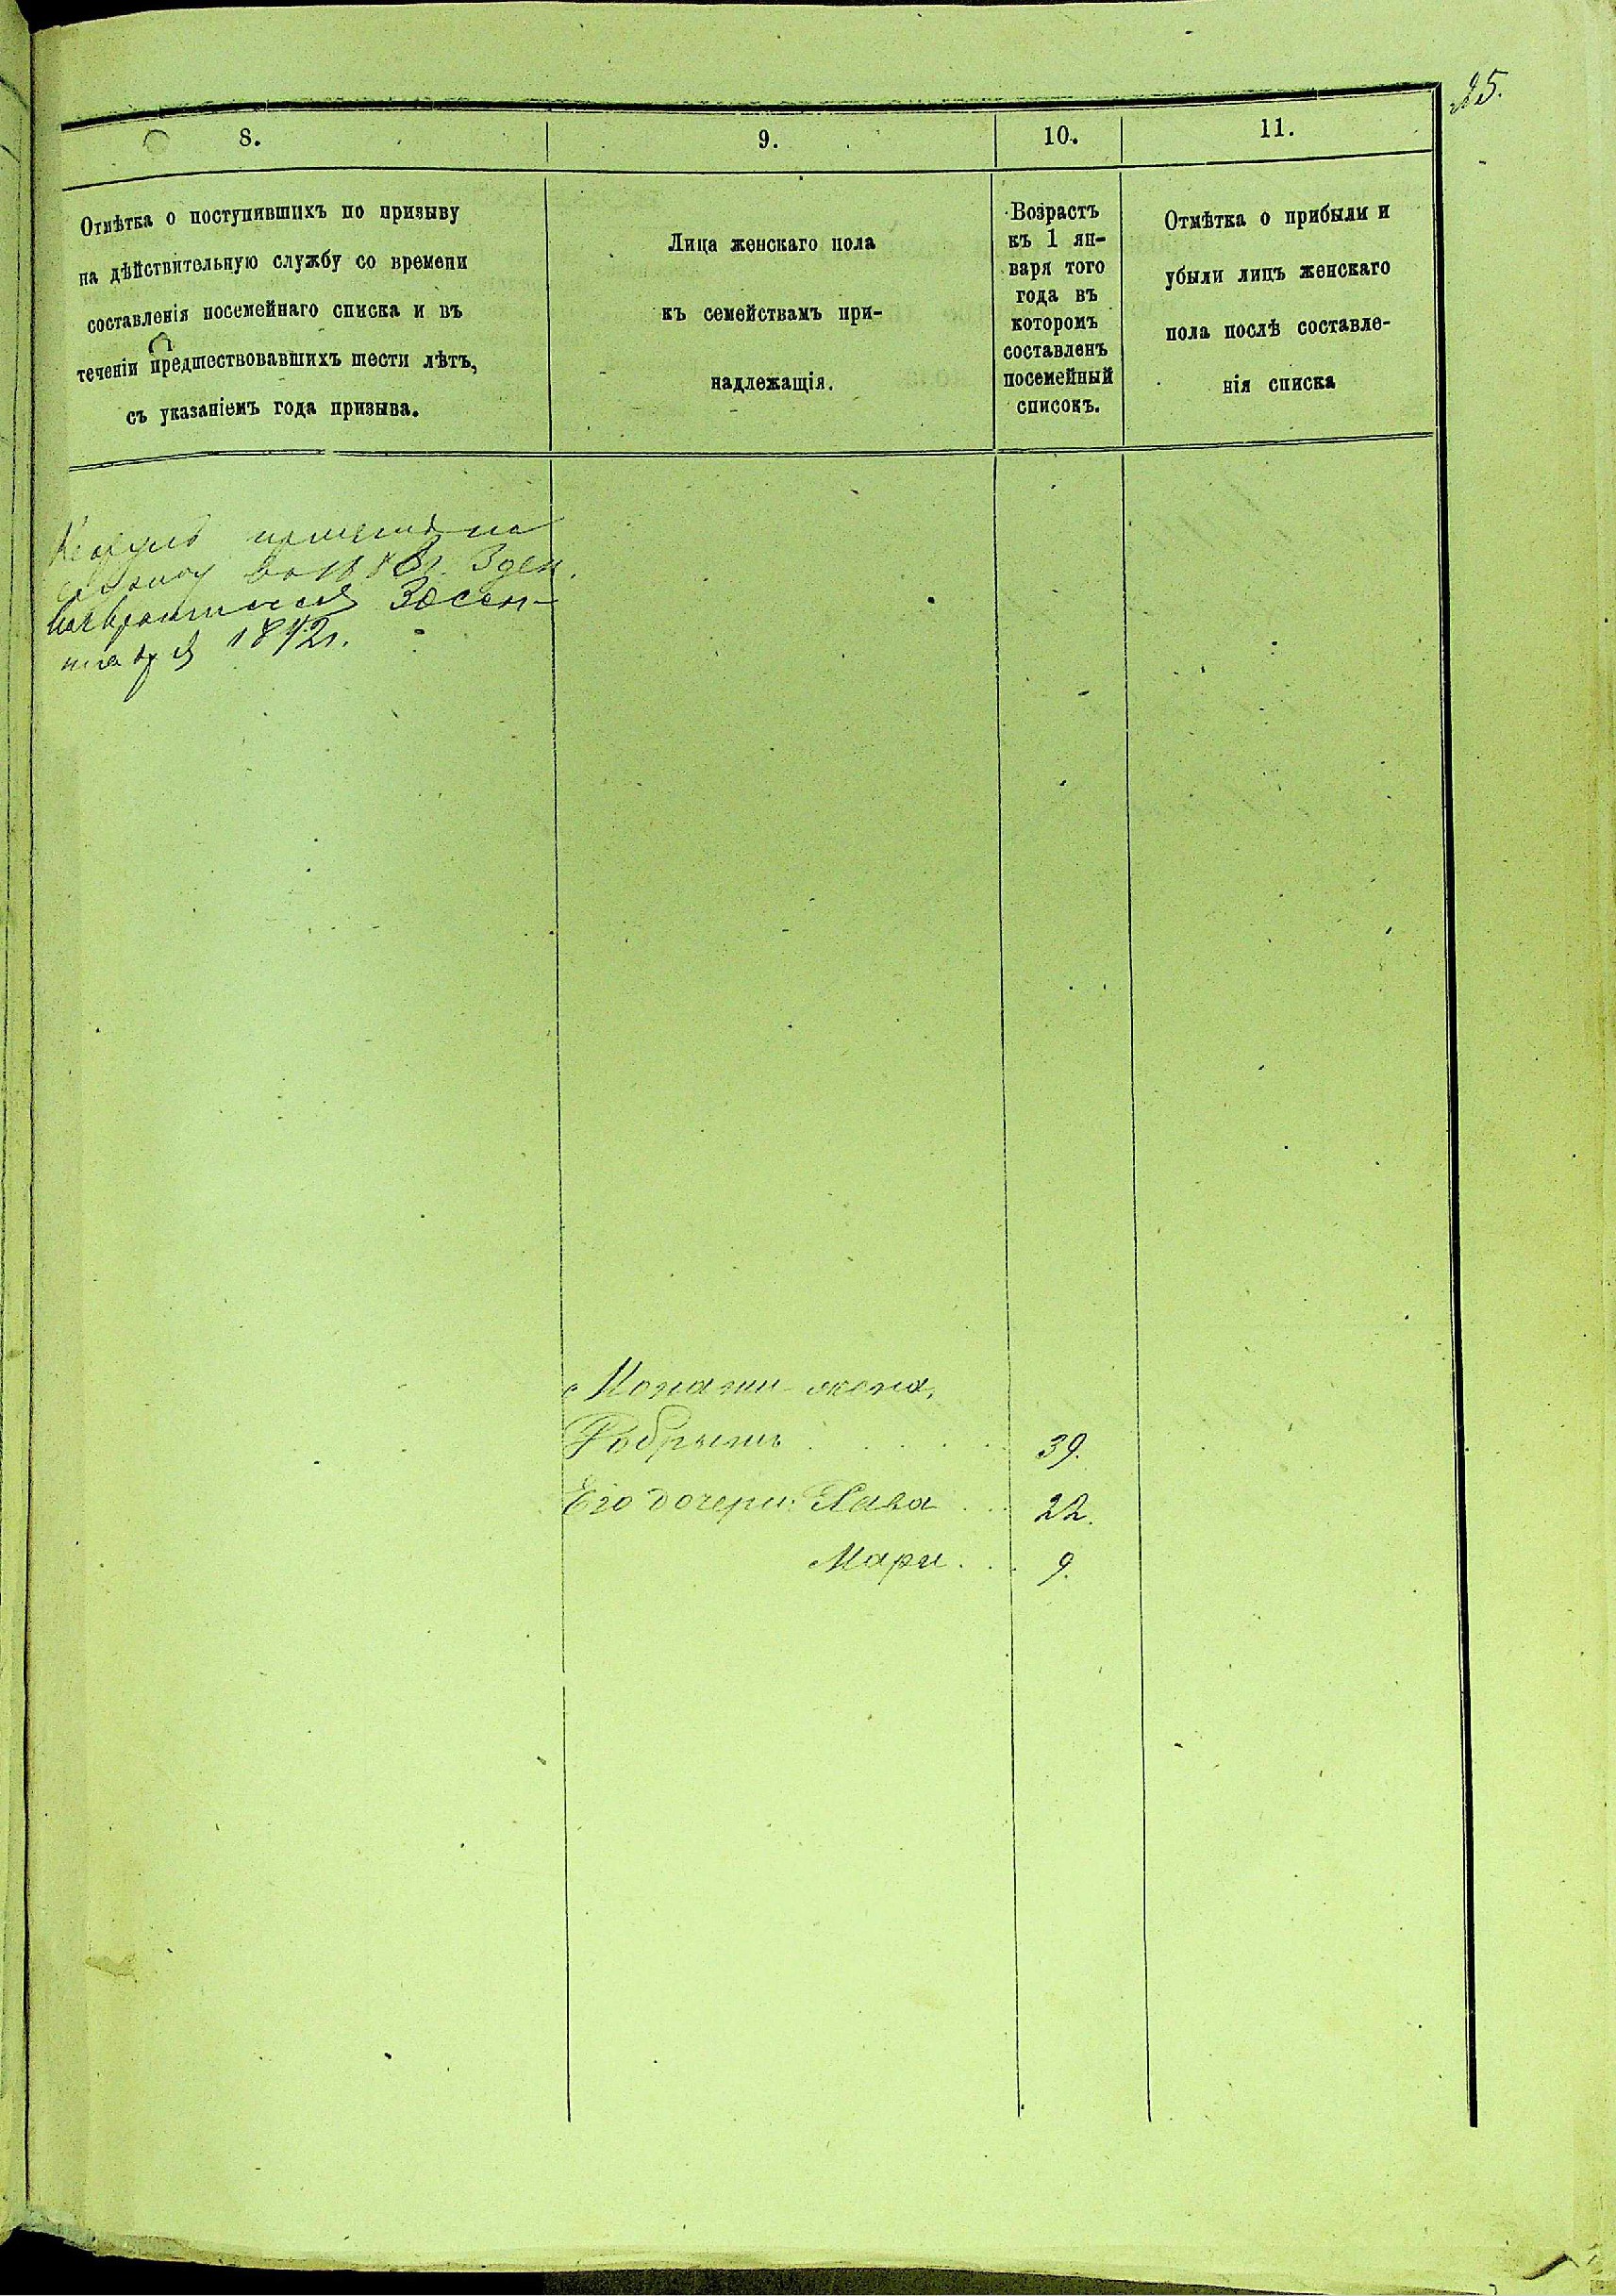 25.
8.
9.
10.
11.
Отмѣтка о поступившихъ по призыву
на дѣйствительную службу со времени
составленія посемейнаго списка и въ
теченіи предшествовавшихъ шести лѣтъ,
съ указаніемъ года призыва.
Лица женскаго пола
къ семействамъ при-
надлежащія.
Возрастъ
къ 1 ян-
варя того
года въ
которомъ
составленъ
посемейный
списокъ.
Отмѣтка о прибыли и
убыли лицъ женскаго
пола послѣ составле-
нія списка
на
30 сен-
тября
жена,
39.
Его дочери: Хава 22.
Мари 9.